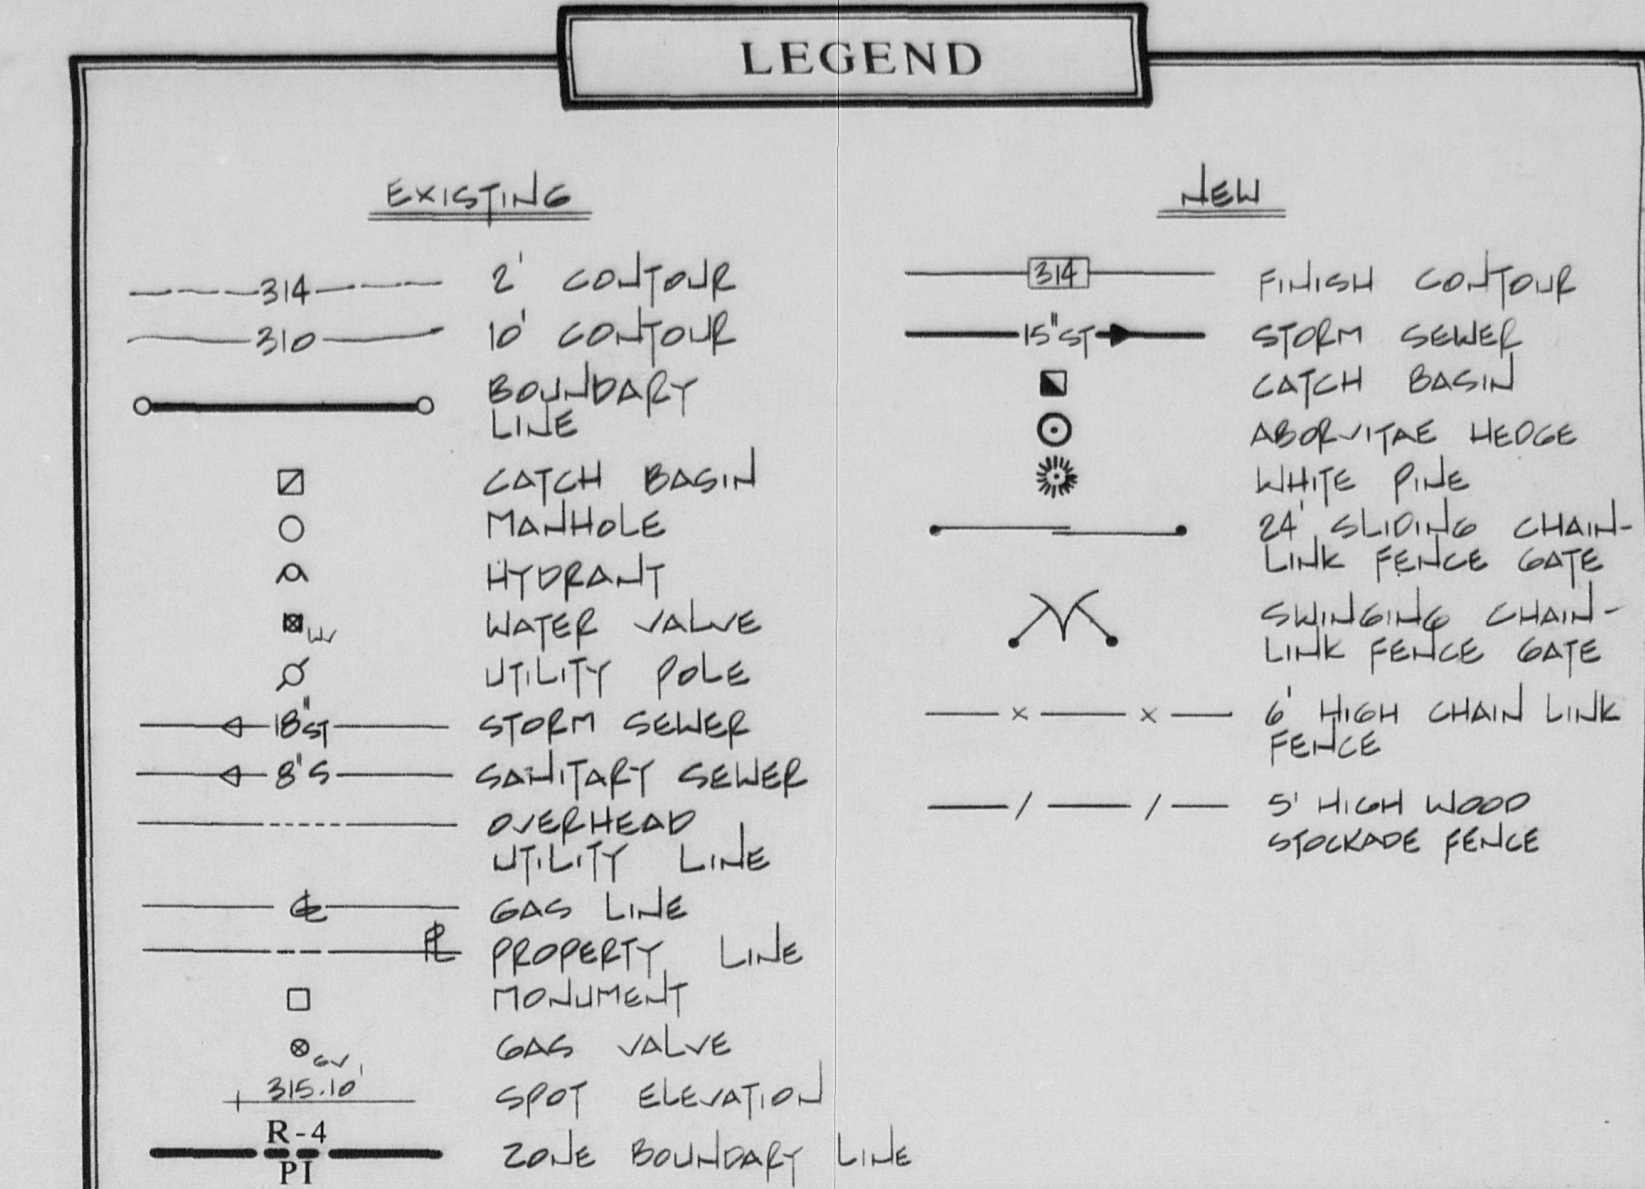 LEGEND
EXISTING
314 2' CONTOUR
310 10' CONTOUR
BOUNDARY
LINE
CATCH BASIN
MANHOLE
HYDRANT
WV WATER VALVE
UTILITY POLE
18"ST STORM SEWER
8"S SANITARY SEWER
OVERHEAD
UTILITY LINE
GL GAS LINE
PL PROPERTY LINE
MONUMENT
GV GAS VALVE
315.10' SPOT ELEVATION
R-4
PI
ZONE BOUNDARY LINE
NEW
314 FINISH CONTOUR
15"ST STORM SEWER
CATCH BASIN
ABORVITAE HEDGE
WHITE PINE
24' SLIDING CHAIN-
LINK FENCE GATE
SWINGING CHAIN-
LINK FENCE GATE
x x 6' HIGH CHAIN LINK
FENCE
/ / 5' HIGH WOOD
STOCKADE FENCE